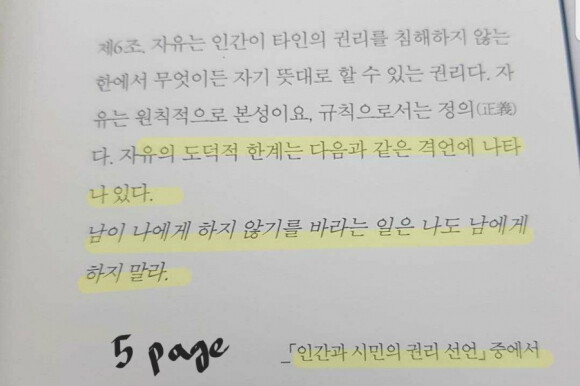 제6조. 자유는 인간이 타인의 권리를 침해하지 않는
한에서 무엇이든 자기 뜻대로 할 수 있는 권리다. 자
유는 원칙적으로 본성이요, 규칙으로서는 정의(正義)
다. 자유의 도덕적 한계는 다음과 같은 격언에 나타
나 있다.
남이 나에게 하지 않기를 바라는 일은 나도 남에게
하지 말라.
5 page
_「인간과 시민의 권리 선언」 중에서